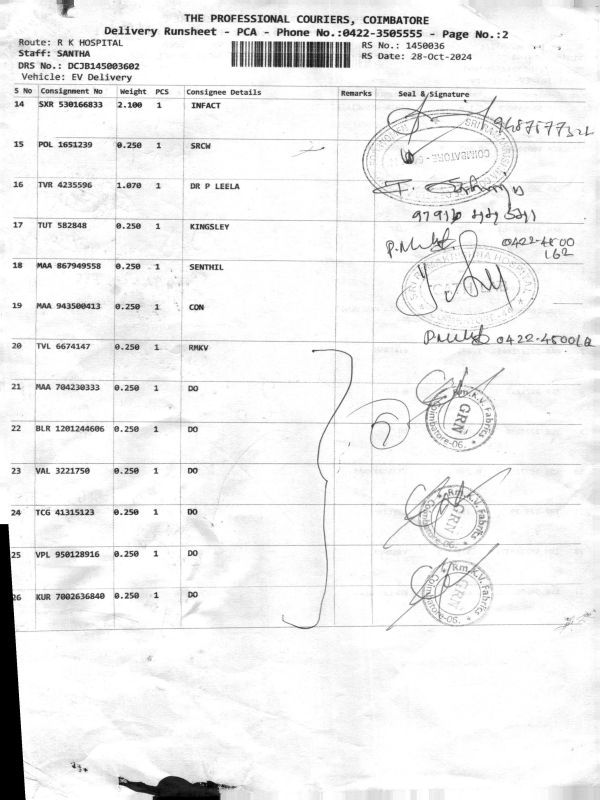 THE PROFESSIONAL COURIERS, COIMBATORE
Delivery Runsheet - PCA - Phone No.:0422-3505555 - Page No.:2
Route: R K HOSPITAL
RS No.: 1450036
Staff: SANTHA
RS Date: 28-Oct-2024
DRS No.: DCJB145003602
Vehicle: EV Delivery
S No Consignment No Weight PCS Consignee Details Remarks Seal & Signature
14 SXR 530166833 2.100 1 INFACT
15 POL 1651239 0.250 1 SRCW
COIMBATORE
16 TVR 4235596 1.070 1 DR P LEELA
17 TUT 582848 0.250 1 KINGSLEY
0422-4500
162
18 MAA 867949558 0.250 1 SENTHIL
19 MAA 943500413 0.250 1 CON
20 TVL 6674147 0.250 1 RMKV
21 MAA 704230333 0.250 1 DO
Rm.K.V. Fabrics
GRN
Coimbatore-06.
22 BLR 1201244606 0.250 1 DO
7
23 VAL 3221750 0.250 1 DO
24 TCG 41315123 0.250 1 DO
Rm.K.V. Fabrics
GRN
Coimbatore-06.
25 VPL 950128916 0.250 1 DO
26 KUR 7002636840 0.250 1 DO
Rm.K.V. Fabrics
GRN
Coimbatore-06.